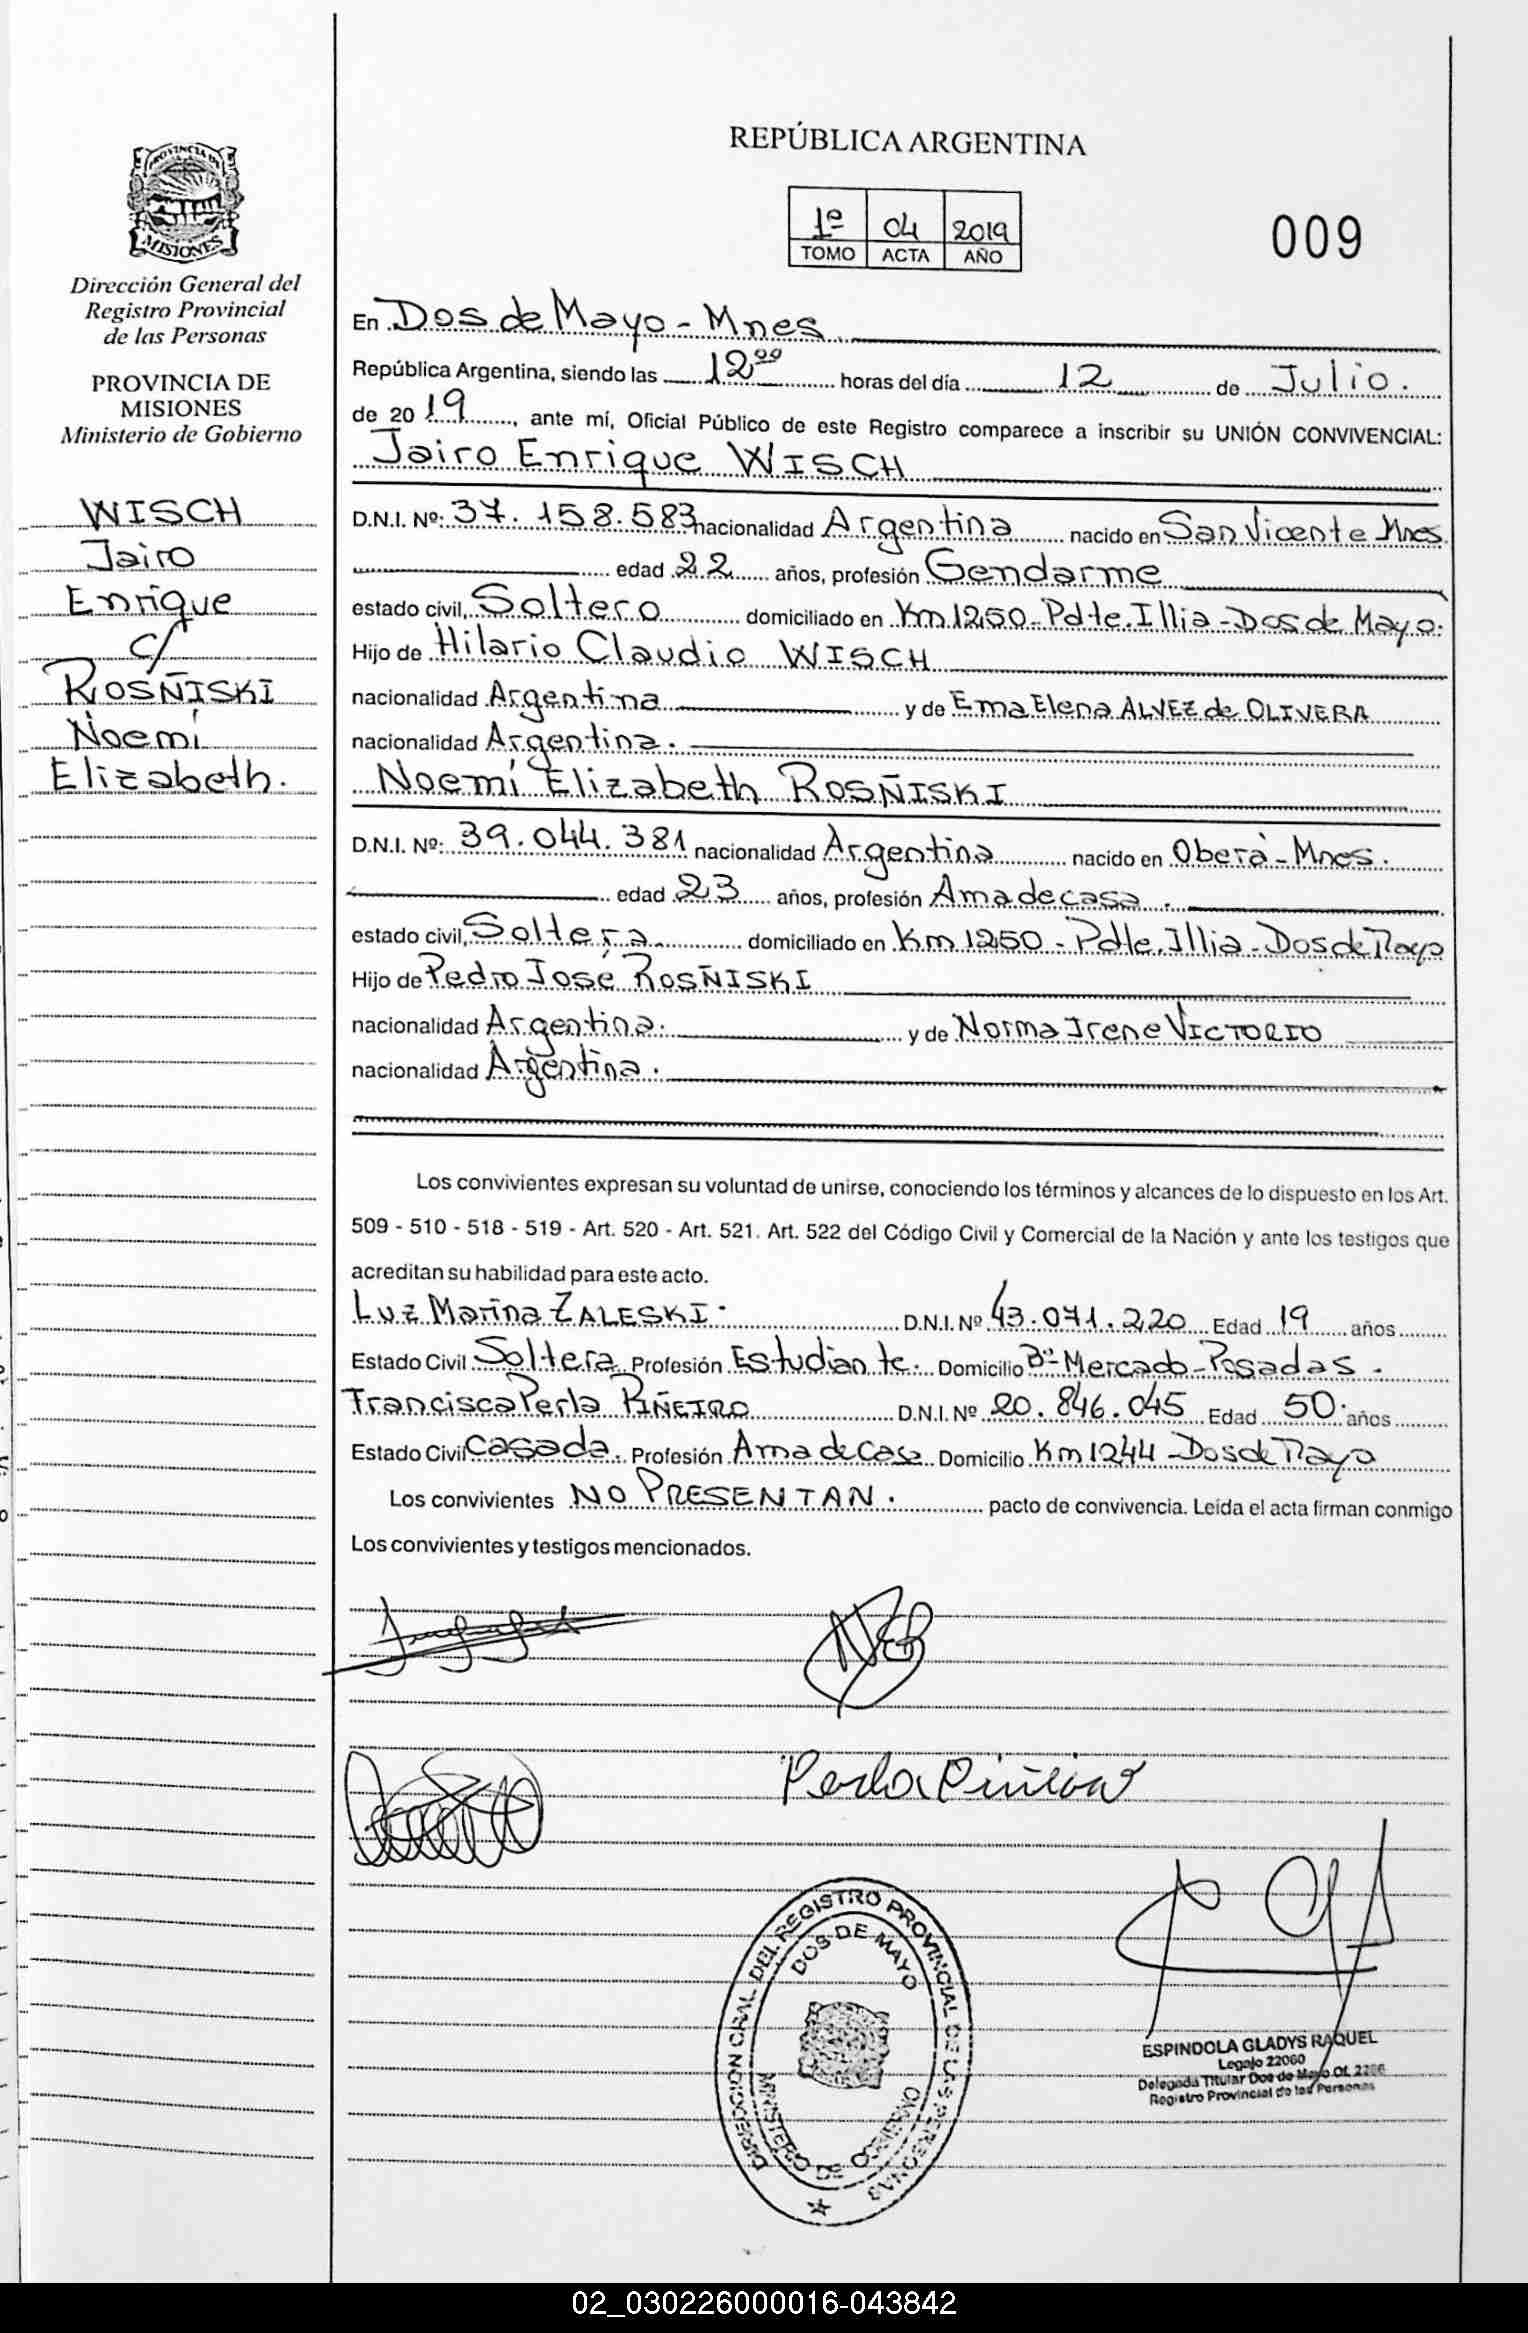 PROVINCIA DE
MISIONES
Dirección General del
Registro Provincial
de las Personas
PROVINCIA DE
MISIONES
Ministerio de Gobierno
WISCH
Jairo
Enrique
c/
ROSÑISKI
Noemí
Elizabeth.
REPÚBLICA ARGENTINA
1º 04 2019
TOMO ACTA AÑO
009
En Dos de Mayo - Mnes.
República Argentina, siendo las 12⁰⁰ horas del día 12 de Julio.
de 20 19, ante mí, Oficial Público de este Registro comparece a inscribir su UNIÓN CONVIVENCIAL:
Jairo Enrique WISCH
D.N.I. Nº: 37.158.583 nacionalidad Argentina nacido en San Vicente Mnes.
edad 22 años, profesión Gendarme
estado civil, Soltero domiciliado en Km 1250 - Pdte. Illia - Dos de Mayo.
Hijo de Hilario Claudio WISCH
nacionalidad Argentina y de Ema Elena ALVEZ de OLIVERA
nacionalidad Argentina.
Noemí Elizabeth ROSÑISKI
D.N.I. Nº: 39.044.381 nacionalidad Argentina nacido en Oberá - Mnes.
edad 23 años, profesión Ama de casa.
estado civil, Soltera domiciliado en Km 1250 - Pdte. Illia - Dos de Mayo
Hijo de Pedro José ROSÑISKI
nacionalidad Argentina. y de Norma Irene VICTORIO
nacionalidad Argentina.
Los convivientes expresan su voluntad de unirse, conociendo los términos y alcances de lo dispuesto en los Art.
509 - 510 - 518 - 519 - Art. 520 - Art. 521. Art. 522 del Código Civil y Comercial de la Nación y ante los testigos que
acreditan su habilidad para este acto.
Luz Marina ZALESKI. D.N.I. Nº 43.071.220 Edad 19 años
Estado Civil Soltera Profesión Estudiante. Domicilio Bº Mercado - Posadas.
Francisca Perla PIÑEIRO D.N.I. Nº 20.846.045 Edad 50 años
Estado Civil Casada. Profesión Ama de Casa Domicilio Km 1244 - Dos de Mayo
Los convivientes NO PRESENTAN. pacto de convivencia. Leída el acta firman conmigo
Los convivientes y testigos mencionados.
Perla Piñeiro
DIRECCION GRAL. DEL REGISTRO PROVINCIAL DE LAS PERSONAS
DOS DE MAYO
MINISTERIO DE GOBIERNO
ESPINDOLA GLADYS RAQUEL
Legajo 22060
Delegada Titular Dos de Mayo Of.
Registro Provincial de las Personas
02_030226000016-043842